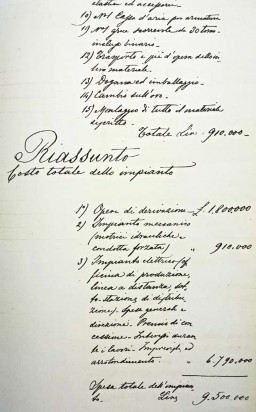 elastici ed accessori.
10) N°1 Cappa d'aria per armature
11) N°1 grue scorrevole da 30 tonn.
incluso binario.
12) Trasporto a piè d'opera
materiale.
13) Dogana ed imballaggio.
14) Cambio sull'oro.
15) Montaggio di tutto il materiale
descritto.
Totale Lire. 910.000-
Riassunto
Costo totale dello impianto
1°) Opere di derivazione L. 1.800.000
2) Impianto meccanico
(motrici idrauliche-
condotta forzata) " 910.000
3) Impianto elettrico (of
ficina di produzione,
linea a distanza, sot.
to-stazione di distribu
zione). Spese generali e
direzione. Premio di con
cessione. Interessi duran
te i lavori. Imprevisti ed
arrotondamento. " 6.790.000
Spesa totale dell'impian
to. Lire 9.500.000